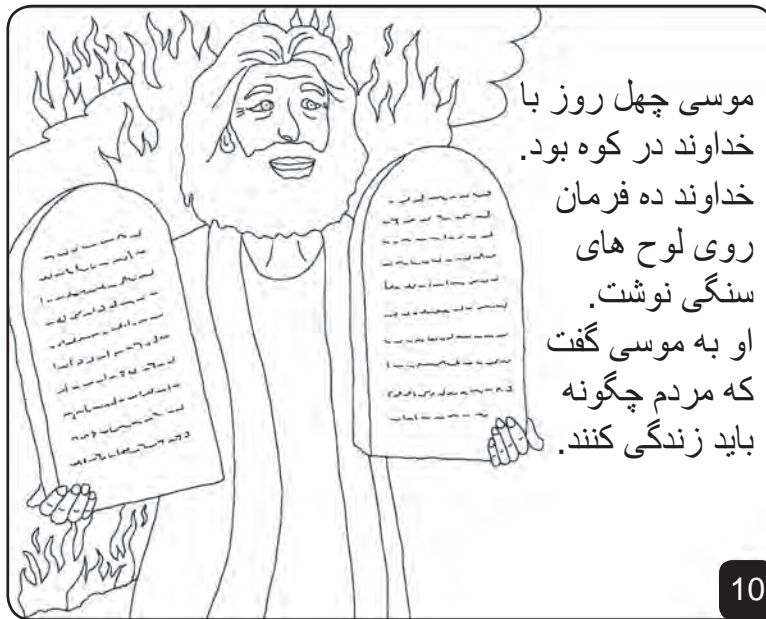 موسی چهل روز با
خداوند در کوه بود.
خداوند ده فرمان
روی لوح های
سنگی نوشت.
او به موسی گفت
که مردم چگونه
باید زندگی کنند.
10